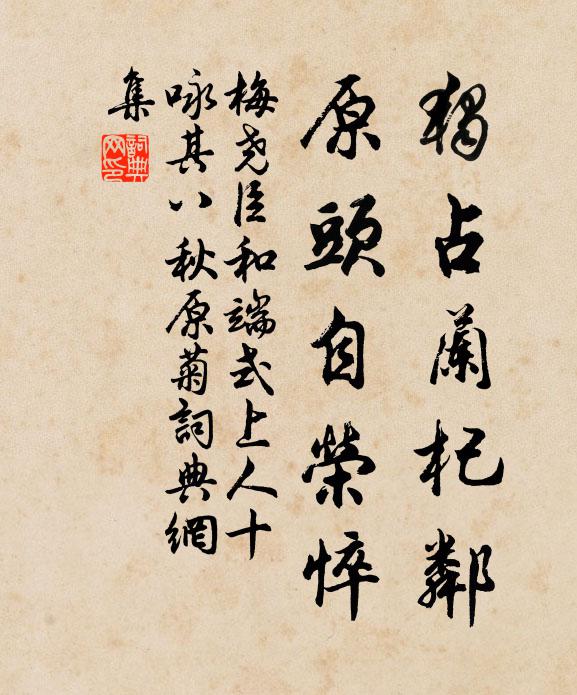 獨占蘭杞鄰
原頭自榮悴
梅堯臣和端式上人十
咏其八秋原菊詞典網
集
詞典網印